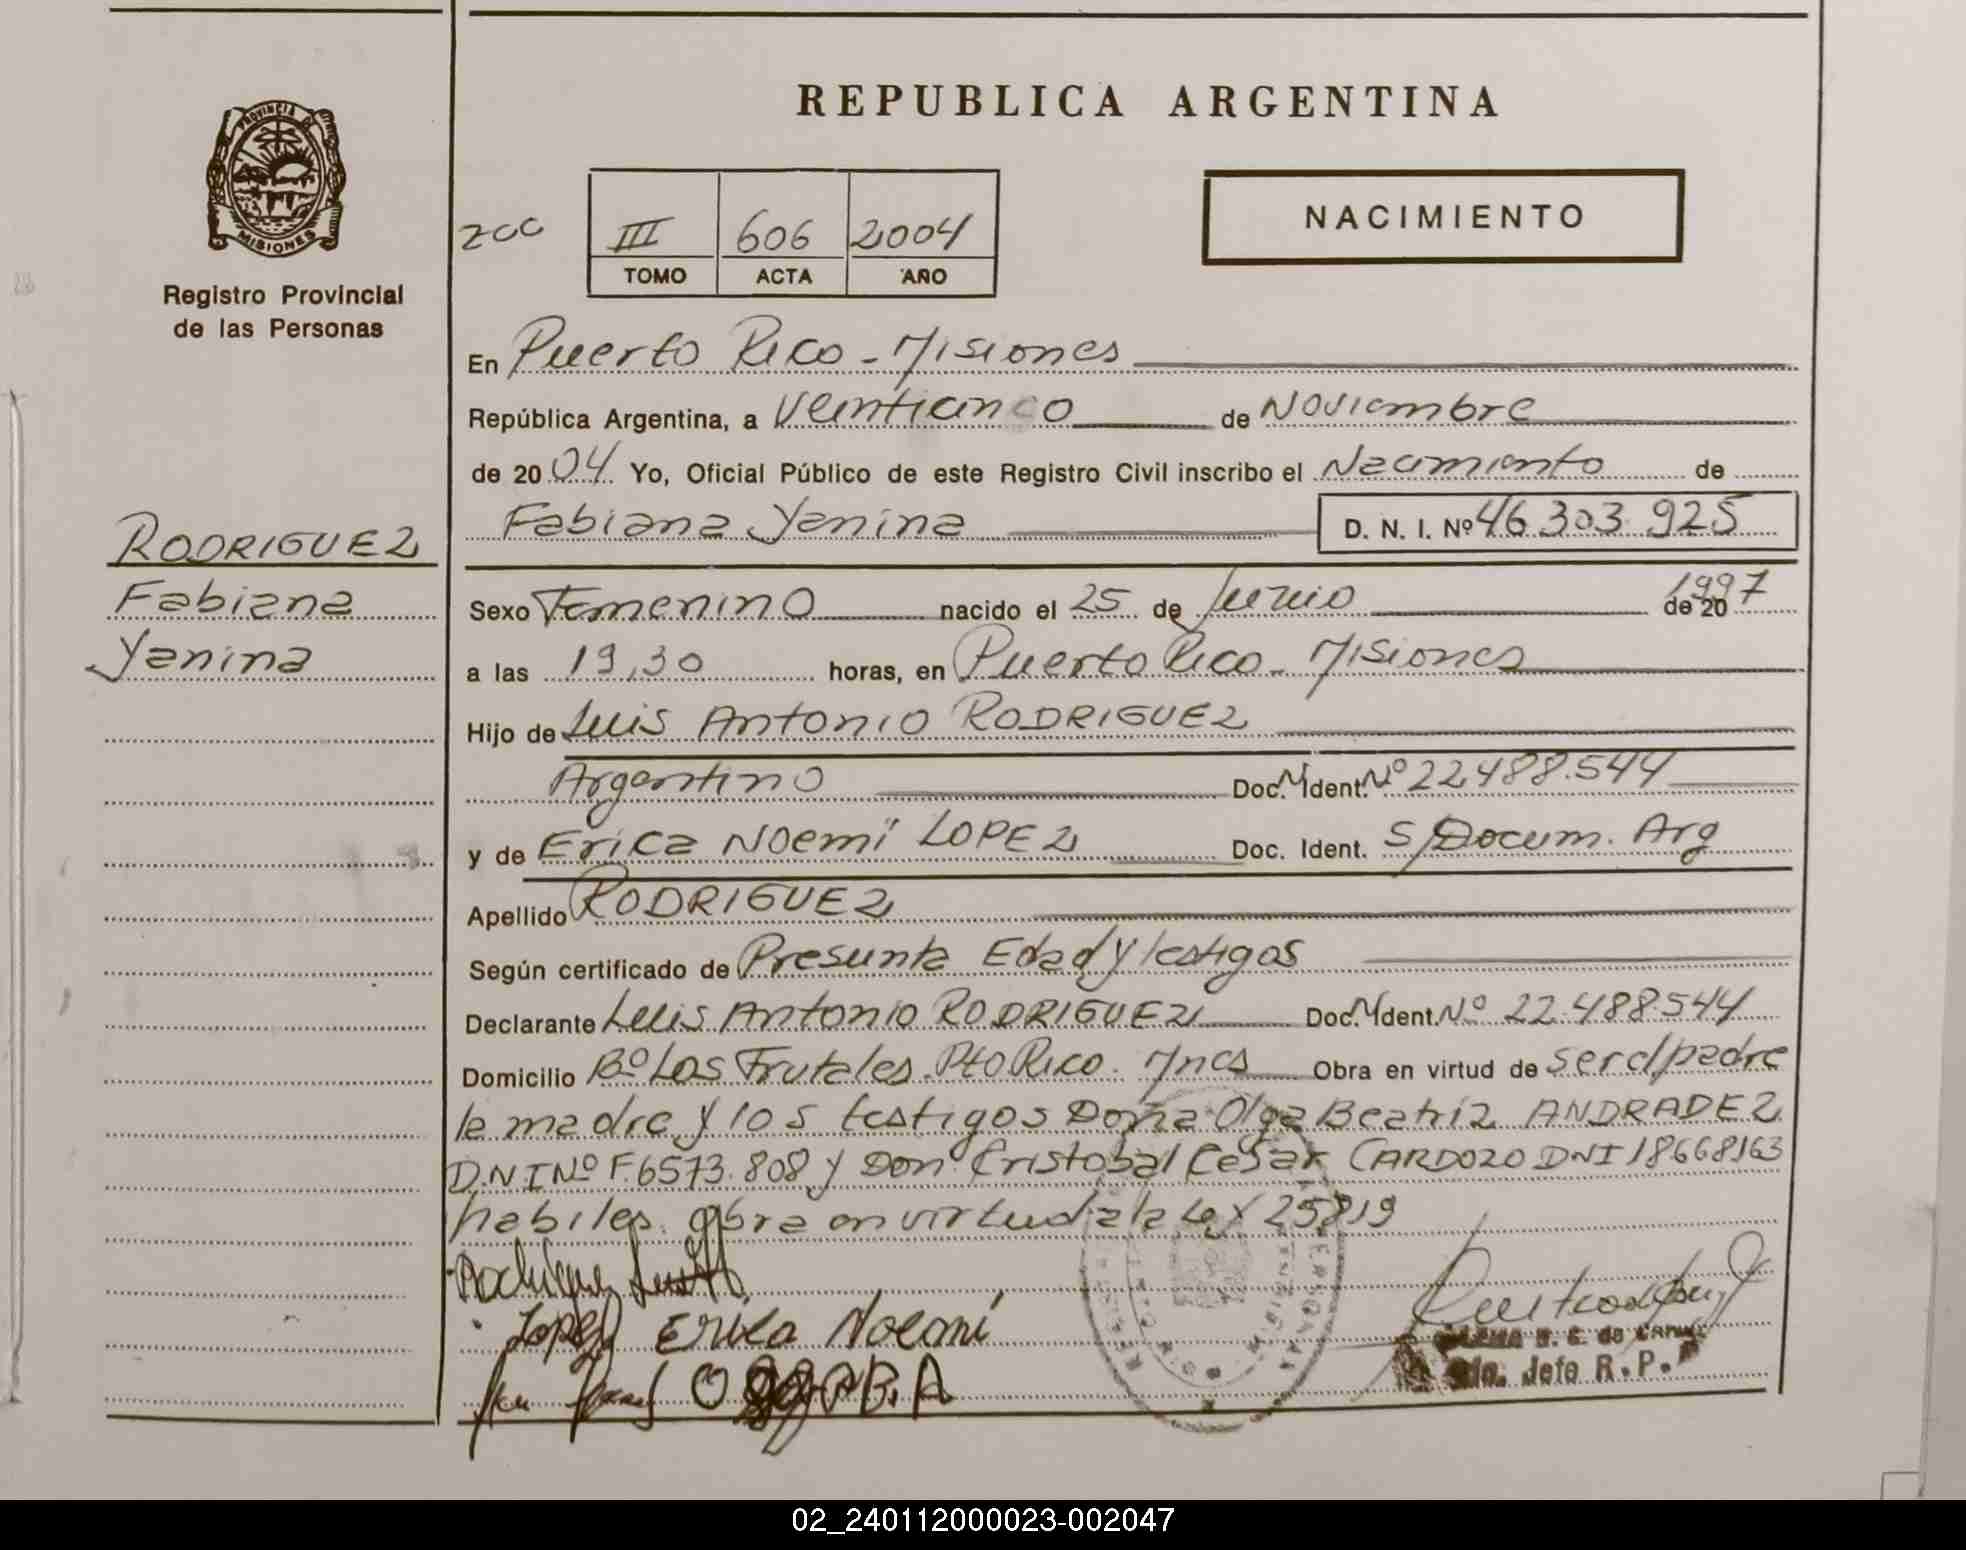 REPUBLICA ARGENTINA
PROVINCIA DE MISIONES
Registro Provincial
de las Personas
NACIMIENTO
III 606 2004
TOMO ACTA AÑO
En Puerto Rico - Misiones
República Argentina, a Veinticinco de Noviembre
de 2004 Yo, Oficial Público de este Registro Civil inscribo el Nacimiento de
Fabiana Yanina D. N. I. Nº 46303.925
RODRIGUEZ
Fabiana
Yanina
Sexo Femenino nacido el 25 de Junio de 20 1997
a las 19,30 horas, en Puerto Rico - Misiones
Hijo de Luis Antonio RODRIGUEZ
Argentino Doc. Ident. Nº 22.488.544
y de Erica Noemí LOPEZ Doc. Ident. S/Docum. Arg
Apellido RODRIGUEZ
Según certificado de Presunta Edad y testigos
Declarante Luis Antonio RODRIGUEZ Doc. Ident. Nº 22.488.544
Domicilio Bº Los Frutales. Pto Rico. Mnes Obra en virtud de ser el padre
la madre y los testigos Doña Olga Beatriz ANDRADEZ
D.N.I Nº F.6573.808 y Don Cristobal Cesar CARDOZO DNI 18668163
habiles. Obra en virtud a la Ley 25819
Rodriguez Luis A
Lopez Erica Noemi
Jefe R. P.
02_240112000023-002047